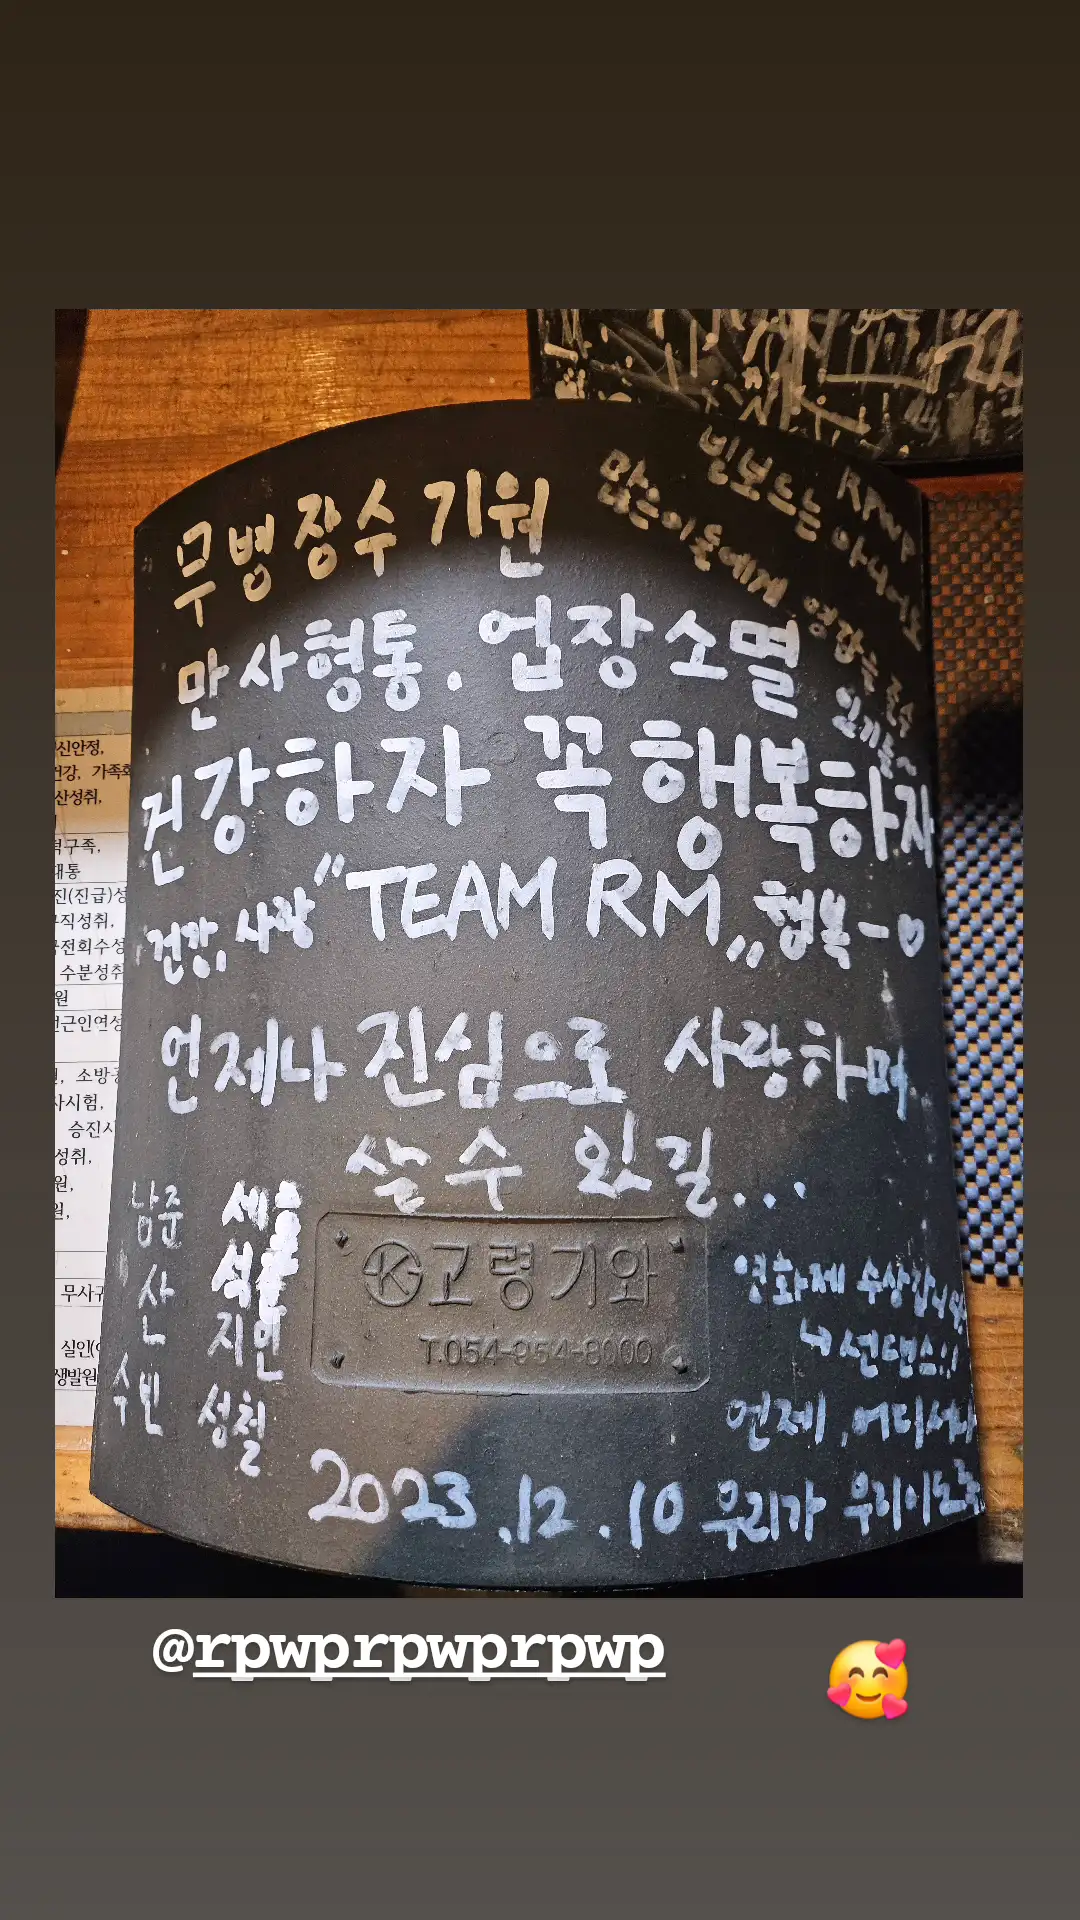 RPWP
빌보드는 아니어도
많은이들에게 영감을 준수
있기를~
무병장수기원
만사형통. 업장소멸
건강하자 꼭 행복하자
건강, 사랑 "TEAM RM" 행복-♡
언제나 진심으로 사랑하며
살 수 있길...
남준
산
수빈
세
석
지인
성철
K 고령기와
T.054-954-8000
영화제 수상갑니다
↳ 선댄스!!
언제, 어디서나
우리가 우리이도록
2023.12.10
신안정,
건강, 가족화
산성취,
덕구족,
대통
진(진급)성
구직성취,
전회수성
수분성취
원
근인연성
소방공
사시험,
승진시
성취,
원,
원,
무사귀
실인(
생발원
@rpwprpwprpwp
🥰